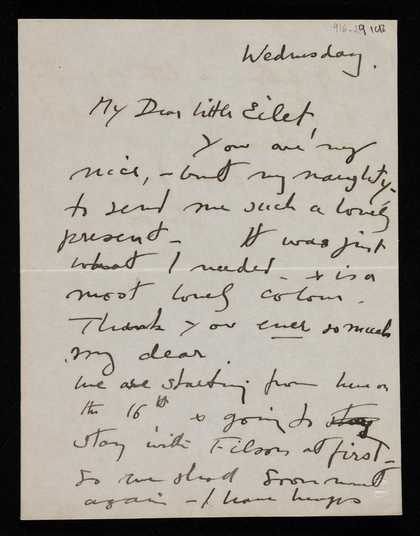 Wednesday.
My Dear little Eilef,
You are my
nice, - but my naughty -
to send me such a lovely
present - It was just
what I needed - & is a
most lovely colour.
Thank you ever so much
my dear.
We are starting from here on
the 16th & going to stay
stay with Filson at first -
So we shall soon meet
again - I have heaps